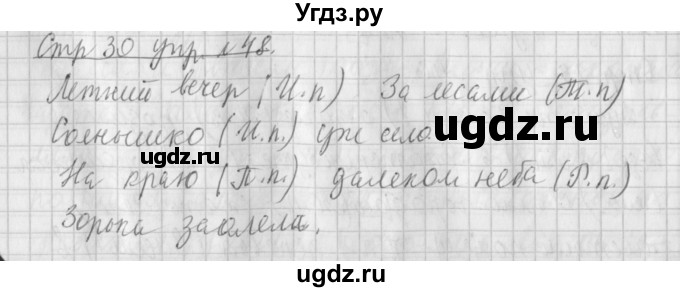 Угдз.ру
Стр 30 упр №48.
Летний вечер (И.п) За лесами (Т.п)
Солнышко (И.п.) уж село
На краю (П.п.) далеком неба (Р.п.)
Зорька заалела.
ugdz.ru
ugdz.ru
ugdz.ru
ugdz.ru